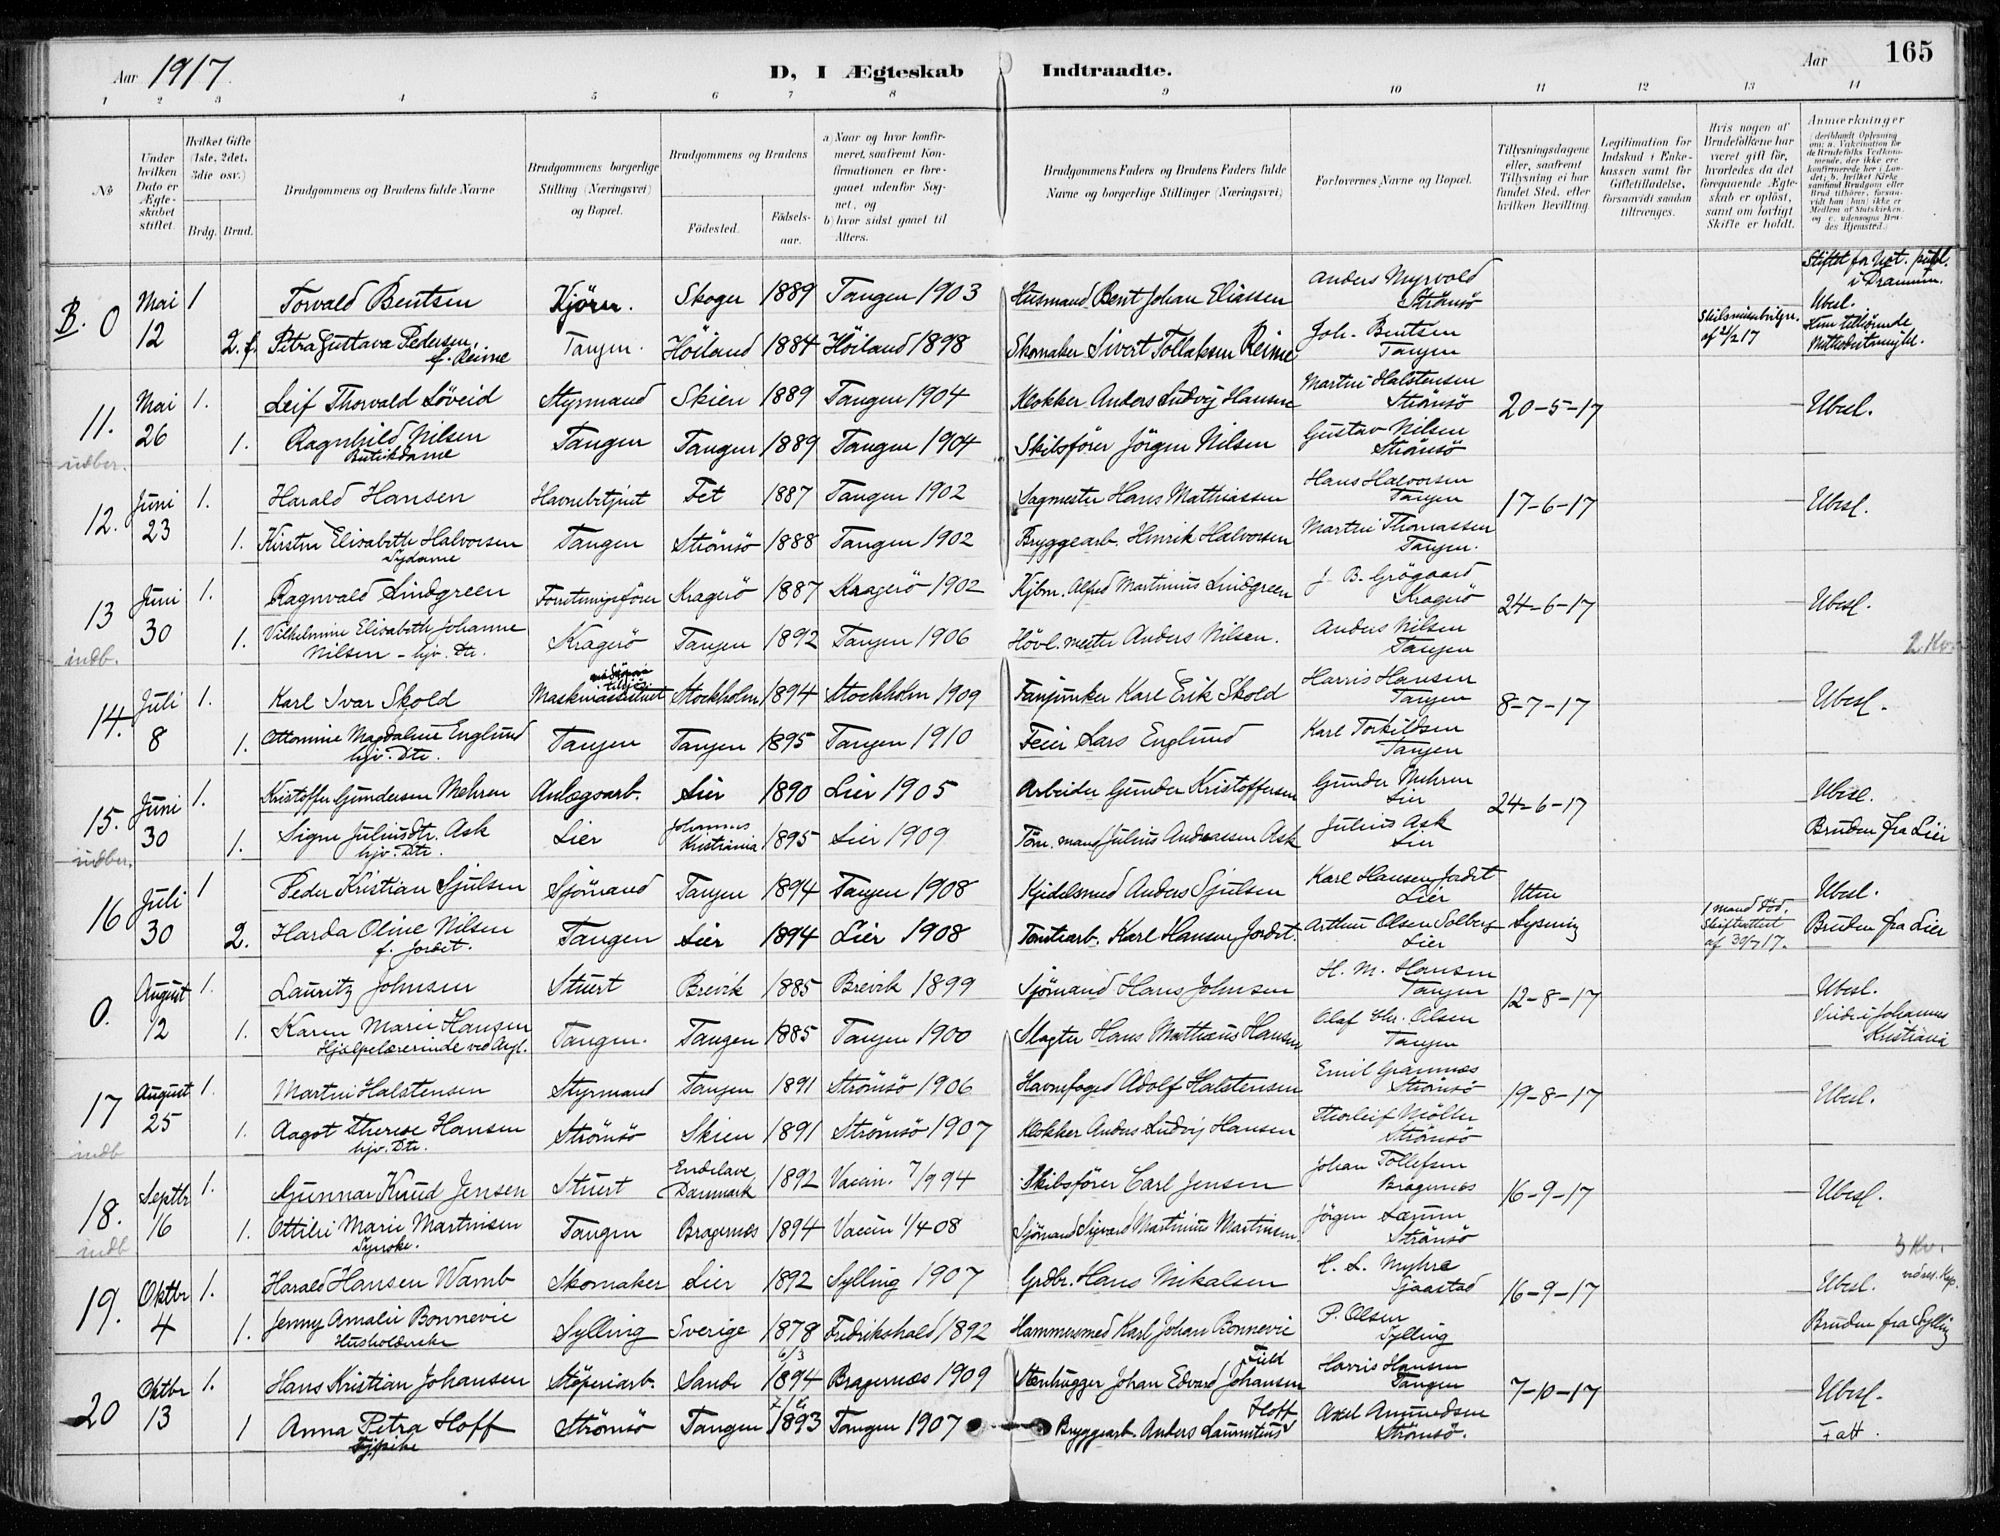 Aar 1917.
D, I Ægteskab Indtraadte.
Aar 165
1 2 3 4 5 6 7 8 9 10 11 12 13 14
№
Under hvilken Dato er Ægteskabet stiftet
Hvilket Gifte (1ste, 2det, 3die osv.)
Brdg. Brud.
Brudgommens og Brudens fulde Navne
Brudgommens borgerlige Stilling (Næringsvei) og Bopæl.
Brudgommens og Brudens
Fødested. Fødselsaar.
a) Naar og hvor konfirmeret, saafremt Konfirmationen er foregaaet udenfor Sognet, og
b) hvor sidst gaaet til Alters.
Brudgommens Faders og Brudens Faders fulde Navne og borgerlige Stillinger (Næringsvei)
Forlovernes Navne og Bopæl.
Tillysningsdagene eller, saafremt Tillysning ei har fundet Sted, efter hvilken Bevilling
Legitimation for Indskud i Enkekassen samt for Giftetilladelse, forsaavidt saadan tiltrænges.
Hvis nogen af Brudefolkene har været gift før, hvorledes da det foregaaende Ægteskab er opløst, samt om lovligt Skifte er holdt.
Anmærkninger (deriblandt Oplysning om: a. Vakcination for de Brudefolks Vedkommende, der ikke ere konfirmerede her i Landet; b. hvilket Kirkesamfund Brudgom eller Brud tilhører, forsaavidt han (hun) ikke er Medlem af Statskirken, og c. udensogns Brudes Hjemsted.)
B. 0 Mai 12 1 Torvald Bentsen Kjörer. Skoger 1889 Tangen 1903 Husmand Bent Johan Eliassen Anders Myrvold Strömsö Stiftet for Not. publ. i Drammen. Ubesl.
2. f. Petra Gustava Pedersen f. Reime Tangen. Höiland 1884 Höiland 1898 Skomaker Sivert Tollaksen Reime Joh. Bentsen Tangen Skilsmissebevilgn. af 2/2 17 Hun tilhörende Methodistmigh.
11. Mai 26 1. Leif Thorvald Löveid Styrmand Skien 1889 Tangen 1904 Klokker Anders Ludvig Hansen Martin Halstensen Strömsö 20-5-17 Ubesl.
udber. 1. Ragnhild Nilsen Butikdame Tangen Tangen 1889 Tangen 1904 Skibsförer Jörgen Nilsen Gustav Nilsen Strömsö
12. Juni 23 1. Harald Hansen Havnebetjent Fet 1887 Tangen 1902 Sagmester Hans Mathiassen Hans Halvorsen Tangen 17-6-17 Ubesl.
1. Kirsten Elisabeth Halvorsen Sydame Tangen Strömsö 1888 Tangen 1902 Bryggearb. Henrik Halvorsen Martin Thomassen Tangen.
13 Juni 30 1. Ragnvald Lindgreen Forretningsförer Kragerö 1887 Kragerö 1902 Kjbm. Alfred Martinius Lindgreen J. B. Grögaard Kragerö 24-6-17 Ubesl.
indb. 1. Vilhelmine Elisabeth Johanne Nilsen - hjv. Dtr. Kragerö Tangen 1892 Tangen 1906 Hövl. mester Anders Nilsen. Anders Nilsen Tangen 2 Kv.
14. Juli 8 1. Karl Ivar Skold Maskinassistent tilsjös Stockholm 1894 Stockholm 1909 Fanjunker Karl Erik Skold Harris Hansen Tangen 8-7-17 Ubesl.
1. Ottomine Magdalene Englund hjv. Dtr. Tangen Tangen 1895 Tangen 1910 Feier Lars Englund Karl Torkildsen Tangen
15. Juni 30 1. Kristoffer Gundersen Mehren Anlægsarb. Lier 1890 Lier 1905 Arbeider Gunder Kristoffersen Gunder Mehren Lier 24-6-17 Ubesl.
udber. 1. Signe Juliusdtr. Ask hjv. Dtr. Lier Johannes Kristiania 1895 Lier 1909 Töm. mand Julius Andreassen Ask Julius Ask Lier Bruden fra Lier
16 Juli 30 1 Peder Kristian Sjulsen Sjömand Tangen 1894 Tangen 1908 Kjedelsmed Anders Sjulsen Karl Hansen Jordet Lier Uten Lysning Ubesl.
2. Harda Oline Nilsen f. Jordet. Tangen Lier 1894 Lier 1908 Tomtearb. Karl Hansen Jordet. Arthur Olsen Solberg Lier 1 mand död. Skifteattest af 30/7 17. Bruden fra Lier
0. August 12 1. Lauritz Johnsen Stuert Brevik 1885 Brevik 1899 Sjömand Hans Johnsen H. M. Hansen Tangen 12-8-17 Ubesl.
1. Karen Marie Hansen Hjælpelærerinde ved Asyl. Tangen. Tangen 1885 Tangen 1900 Slagter Hans Mathæus Hansen Olaf Chr. Olsen Tangen Viede i Johannes Kristiania
17 August 25 1. Martin Halstensen Styrmand Tangen 1891 Strömsö 1906 Havnefoged Adolf Halstensen Emil Grannæs Strömsö 19-8-17 Ubesl.
indb 1. Aagot Therese Hansen hjv. Dtr. Strömsö Skien 1891 Strömsö 1907 Klokker Anders Ludvig Hansen Thorleif Möller Strömsö
18. Septbr 16 1. Gunnar Knud Jensen Stuert Endelave Danmark 1892 Vaccin. 7/9 94 Skibsförer Carl Jensen Johan Tollefsen Bragernes 16-9-17 Ubesl.
indb 1. Ottilie Marie Martinsen Synske. Tangen Bragernæs 1894 Vaccin 1/4 08 Sjömand Sigvard Martinius Martinsen. Jörgen Larum Strömsö
19. Oktbr 4 1. Harald Hansen Wamb Skomaker Lier 1892 Sylling 1907 Grdbr. Hans Mikalsen H. L. Myhre Sjaastad 16-9-17 Ubesl. 3 Kv.
1. Jenny Amalie Bonnevie Husholderske Sylling Sverige 1878 Fredrikshald 1892 Hammersmed Karl Johan Bonnevie P. Olsen Sylling Bruden fra Sylling
20 Oktbr 13 1. Hans Kristian Johansen Stöperiarb. Sande 6/3 1894 Bragernæs 1909 Stenhugger Johan Edvard Johansen Harris Hansen Tangen 7-10-17 Ubesl.
1 Anna Petra Hoff Sypike Strömsö Tangen 1893 Tangen 1907 Bryggearb. Anders Laurentius Hoff Axel Amundsen Strömsö. Fatt.